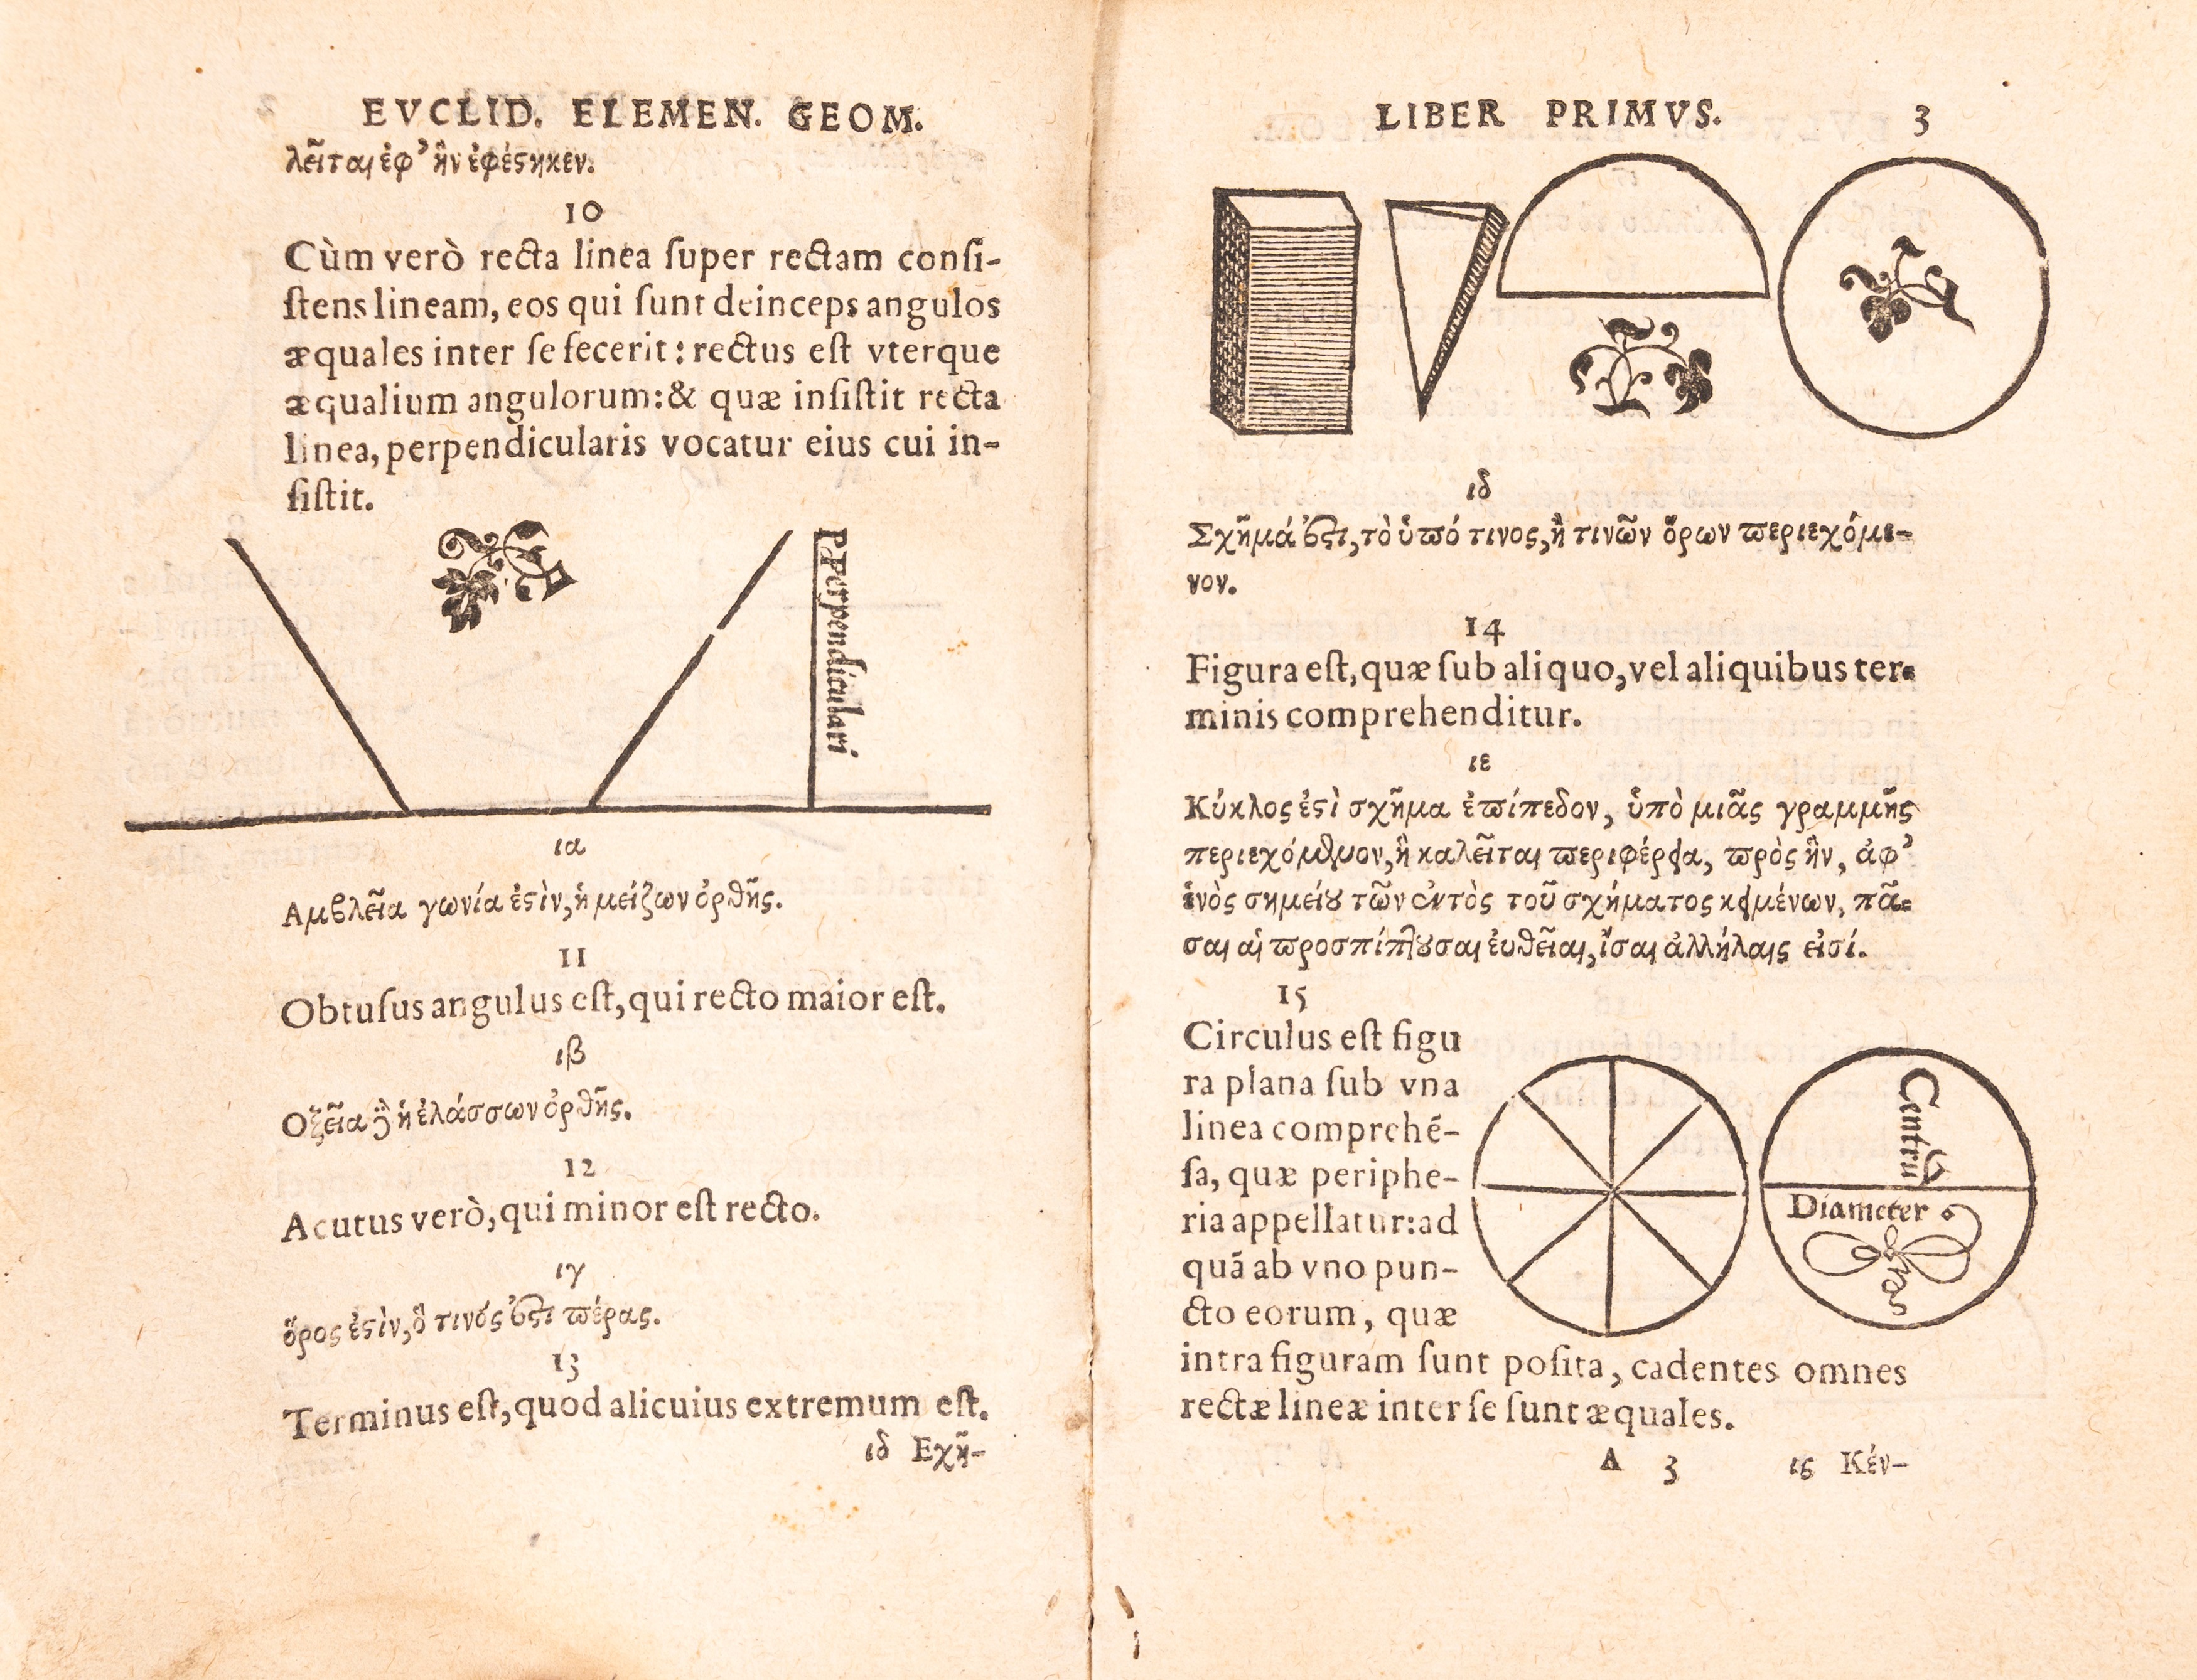 EVCLID. ELEMEN. GEOM.
λεῖται ἐφ’ ἣν ἐφέςηκεν.
10
Cùm verò recta linea ſuper rectam conſi-
ſtens lineam, eos qui ſunt deinceps angulos
æquales inter ſe fecerit: rectus eſt vterque
æqualium angulorum: & quæ inſiſtit recta
linea, perpendicularis vocatur eius cui in-
ſiſtit.
Perpendiculari
ια
Αμβλεῖα γωνία ἐςὶν, ἡ μείζων ὀρθῆς.
11
Obtuſus angulus eſt, qui recto maior eſt.
ιβ
Οξεῖα ἢ ἡ ἐλάσσων ὀρθῆς.
12
Acutus verò, qui minor eſt recto.
ιγ
ὅρος ἐςὶν, ὅ τινός ὅςι πέρας.
13
Terminus eſt, quod alicuius extremum eſt.
ιδ Εχῆ-
LIBER PRIMVS. 3
ιδ
Σχῆμά ὅςι, τὸ ὑπό τινος, ἤ τινῶν ὅρων περιεχόμε-
νον.
14
Figura eſt, quæ ſub aliquo, vel aliquibus ter-
minis comprehenditur.
ιε
Κύκλος ἐςὶ σχῆμα ἐπίπεδον, ὑπὸ μιᾶς γραμμῆς
περιεχόμενον, ἣ καλεῖται περιφέρεια, πρὸς ἣν, ἀφ’
ἑνὸς σημείου τῶν ἐντὸς τοῦ σχήματος κειμένων, πᾶ-
σαι αἱ προσπίπτουσαι ἐυθεῖαι, ἴσαι ἀλλήλαις εἰσί.
15
Circulus eſt figu
ra plana ſub vna
linea comprehẽ-
ſa, quæ periphe-
ria appellatur: ad
quã ab vno pun-
cto eorum, quæ
intra figuram ſunt poſita, cadentes omnes
rectæ lineæ inter ſe ſunt æquales.
Centrũ
Diameter
A 3 ις Κέν-